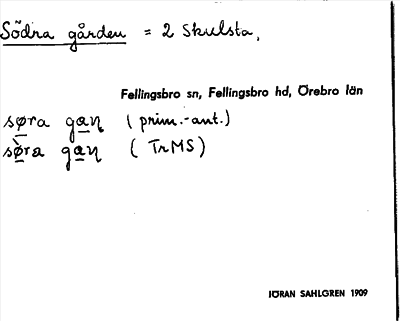 Södra gården = 2 Skulsta,
Fellingsbro sn, Fellingsbro hd, Örebro län
søra gaɳ (prim.-ant.)
sø̀ra gaɳ (TrMS)
IÖRAN SAHLGREN 1909